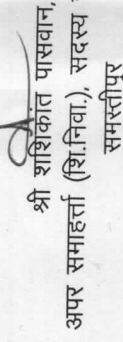 श्री शशिकांत पासवान,
अपर समाहर्त्ता (शि.निवा.), सदस्य
समस्तीपुर